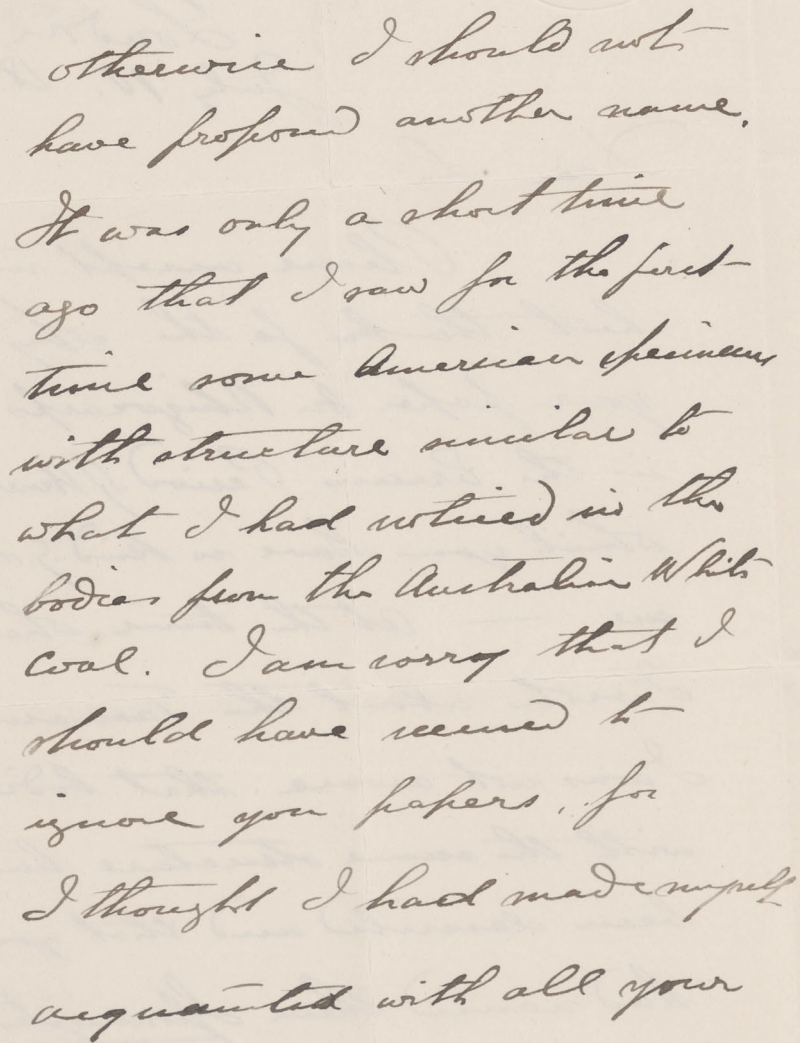 otherwise I should not
have proposed another name.
It was only a short time
ago that I saw for the first
time some American specimens
with structure similar to
what I had noticed in the
bodies from the Australian White
coal. I am sorry that I
should have seemed to
ignore your papers, for
I thought I had made myself
acquainted with all your